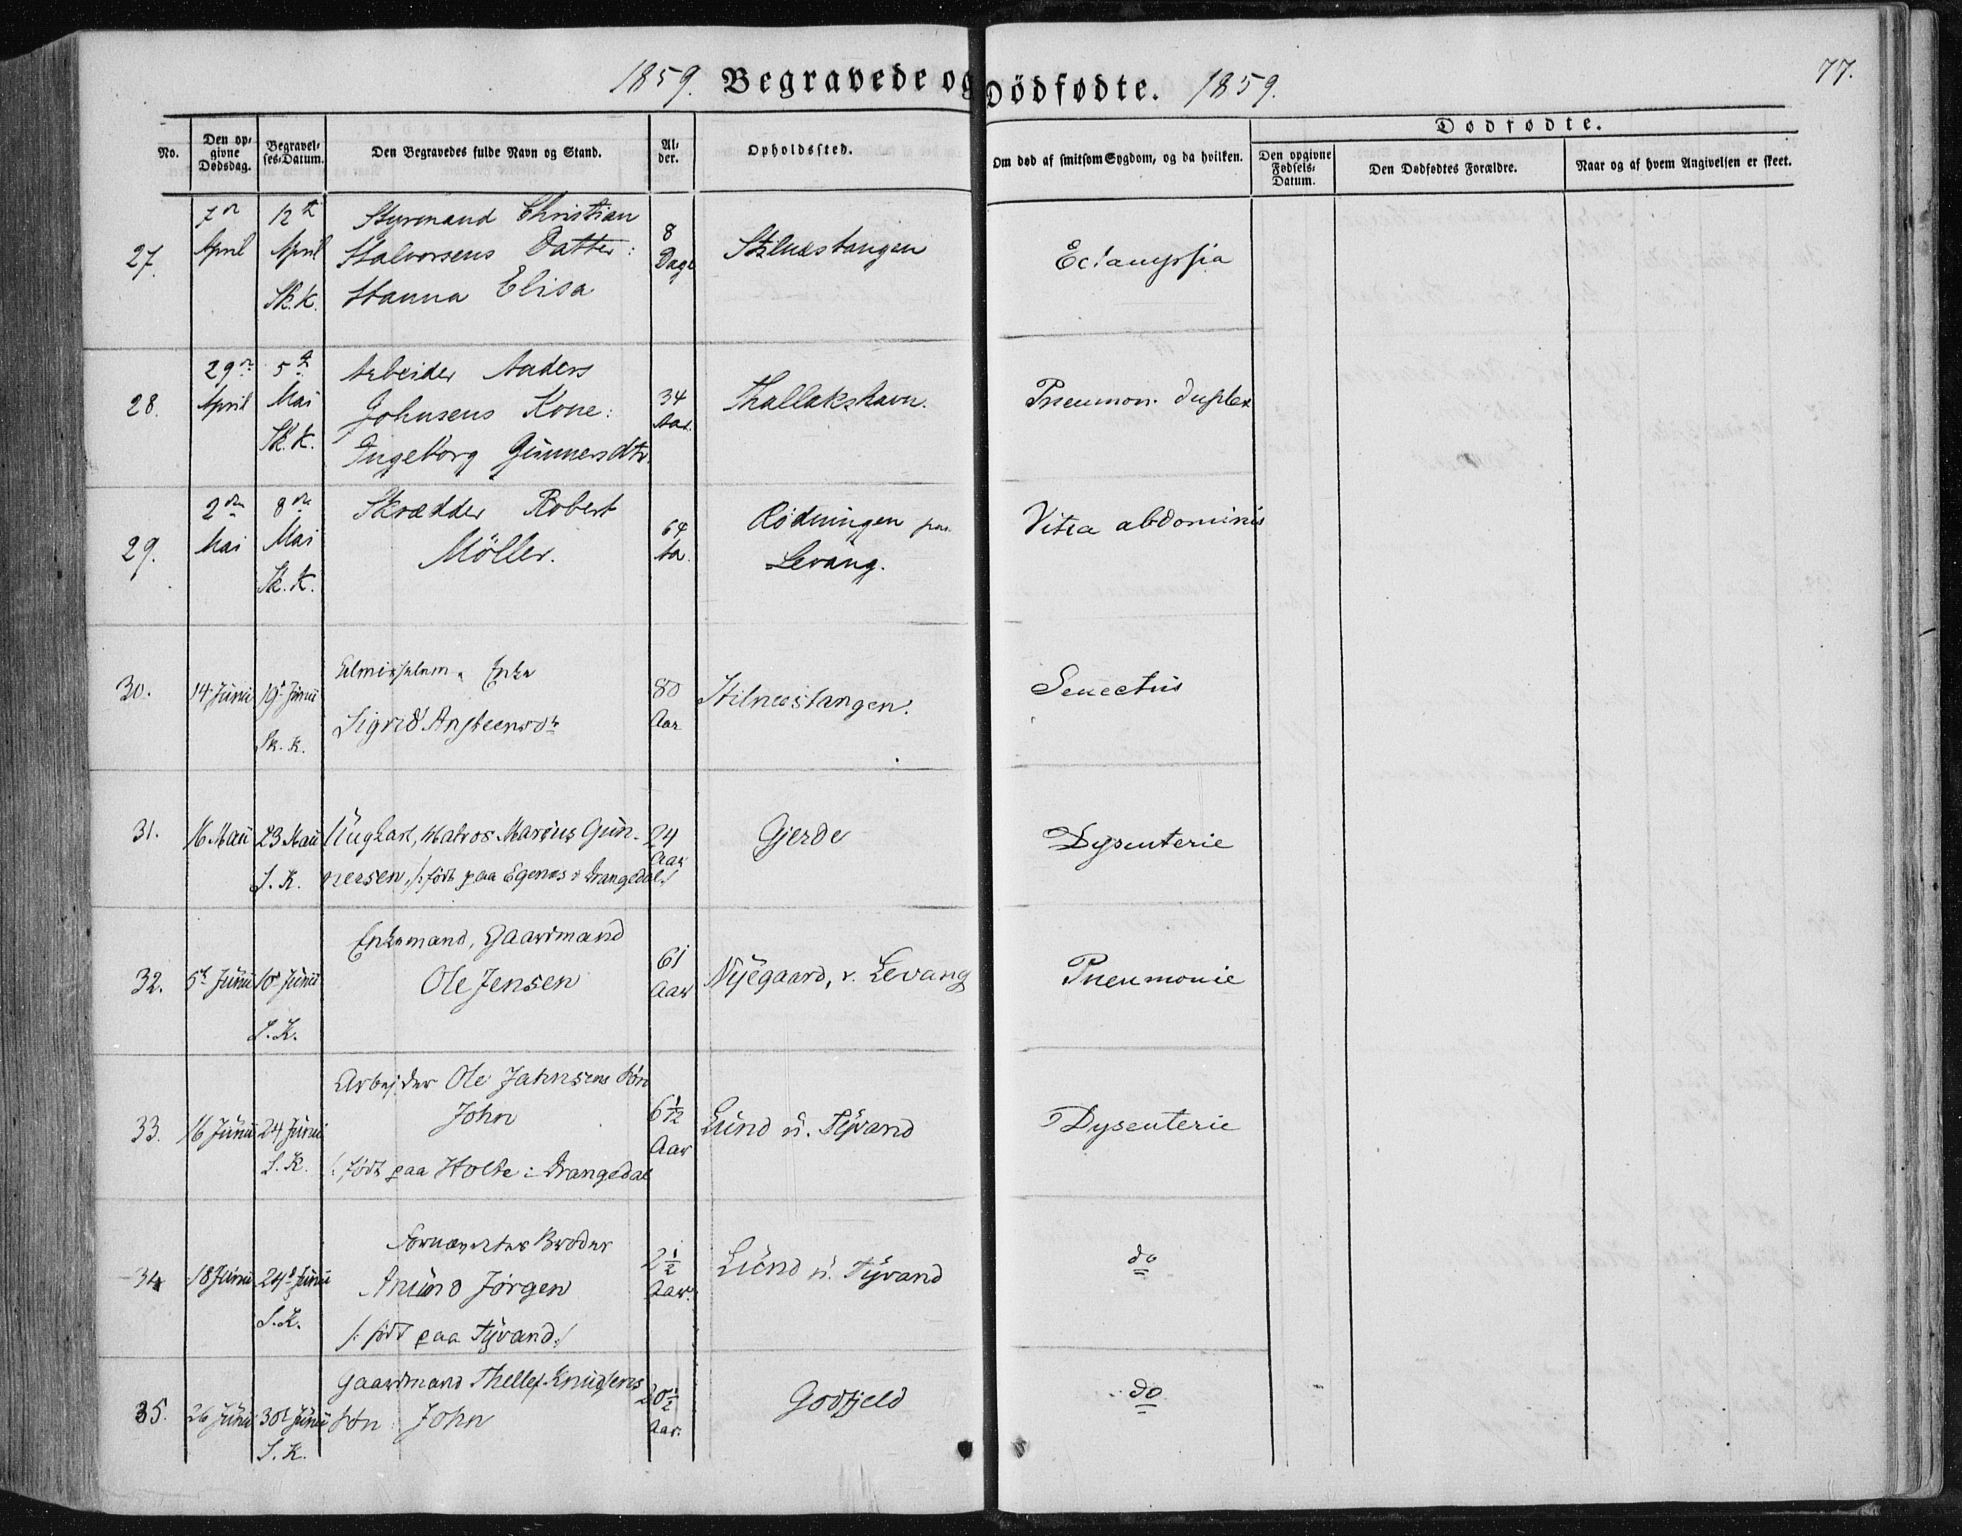 1859. Begravede og Dödfødte. 1859.
77.
No.
Den opgivne Dødsdag.
Begravelses-Datum.
Den Begravedes fulde Navn og Stand.
Alder.
Opholdssted.
Om død af smitsom Sygdom, og da hvilken.
Dødfødte.
Den opgivne Fødsels-Datum.
Den Dødfødtes Forældre.
Naar og af hvem Angivelsen er skeet.
27.
7de April
12te April
Sk. K.
Styrmand Christian
Halvorsens Datter:
Hanna Elisa
8 Dage
Stilnestangen
Eclampsia
28.
29de April
5te Mai
Sk. K.
Arbeider Anders
Johnsens Kone:
Ingeborg Gunnersdtr.
34 Aar.
Thallakshavn.
Pneumon. duplex
29.
2den Mai
8de Mai
Sk. K.
Skrædder Robert
Möller.
64 Aa.
Rödningen
Levang.
Vitia abdominis
30.
14. Juni
19. Juni
Sk. K.
Enke
Sigrid
80 Aar
Stilnestangen.
Senectus
31.
16 Maii
23 Maii
S. K.
Ungkarl, Matros Marius Gunnersen, /: født paa Egenes i Drangedal :/
24 Aar
Gjerde
Dysenterie
32.
5t Junii
10t Junii
S. K.
Enkemand, Gaardmand
Ole Jensen
61 Aar
Nyegaard, v. Levang
Pneumonie
33.
16 Junii
24 Junii
S. K.
Arbejder Ole Jahnsens Søn
John
/: født paa Holte i Drangedal
6 1/12 Aar
Lund u. Tyvand
Dysenterie
34
18 Junii
24t Junii
S. K.
Fornævntes Broder
Anund Jørgen
/: født paa Tyvand :/
2 1/2 Aar.
Lund u. Tyvand
do
35.
26 Junii
30t Junii
S. K.
Gaardmand Thellef Knudsens
Søn: John
20 1/2 Aar.
Godfjeld
do